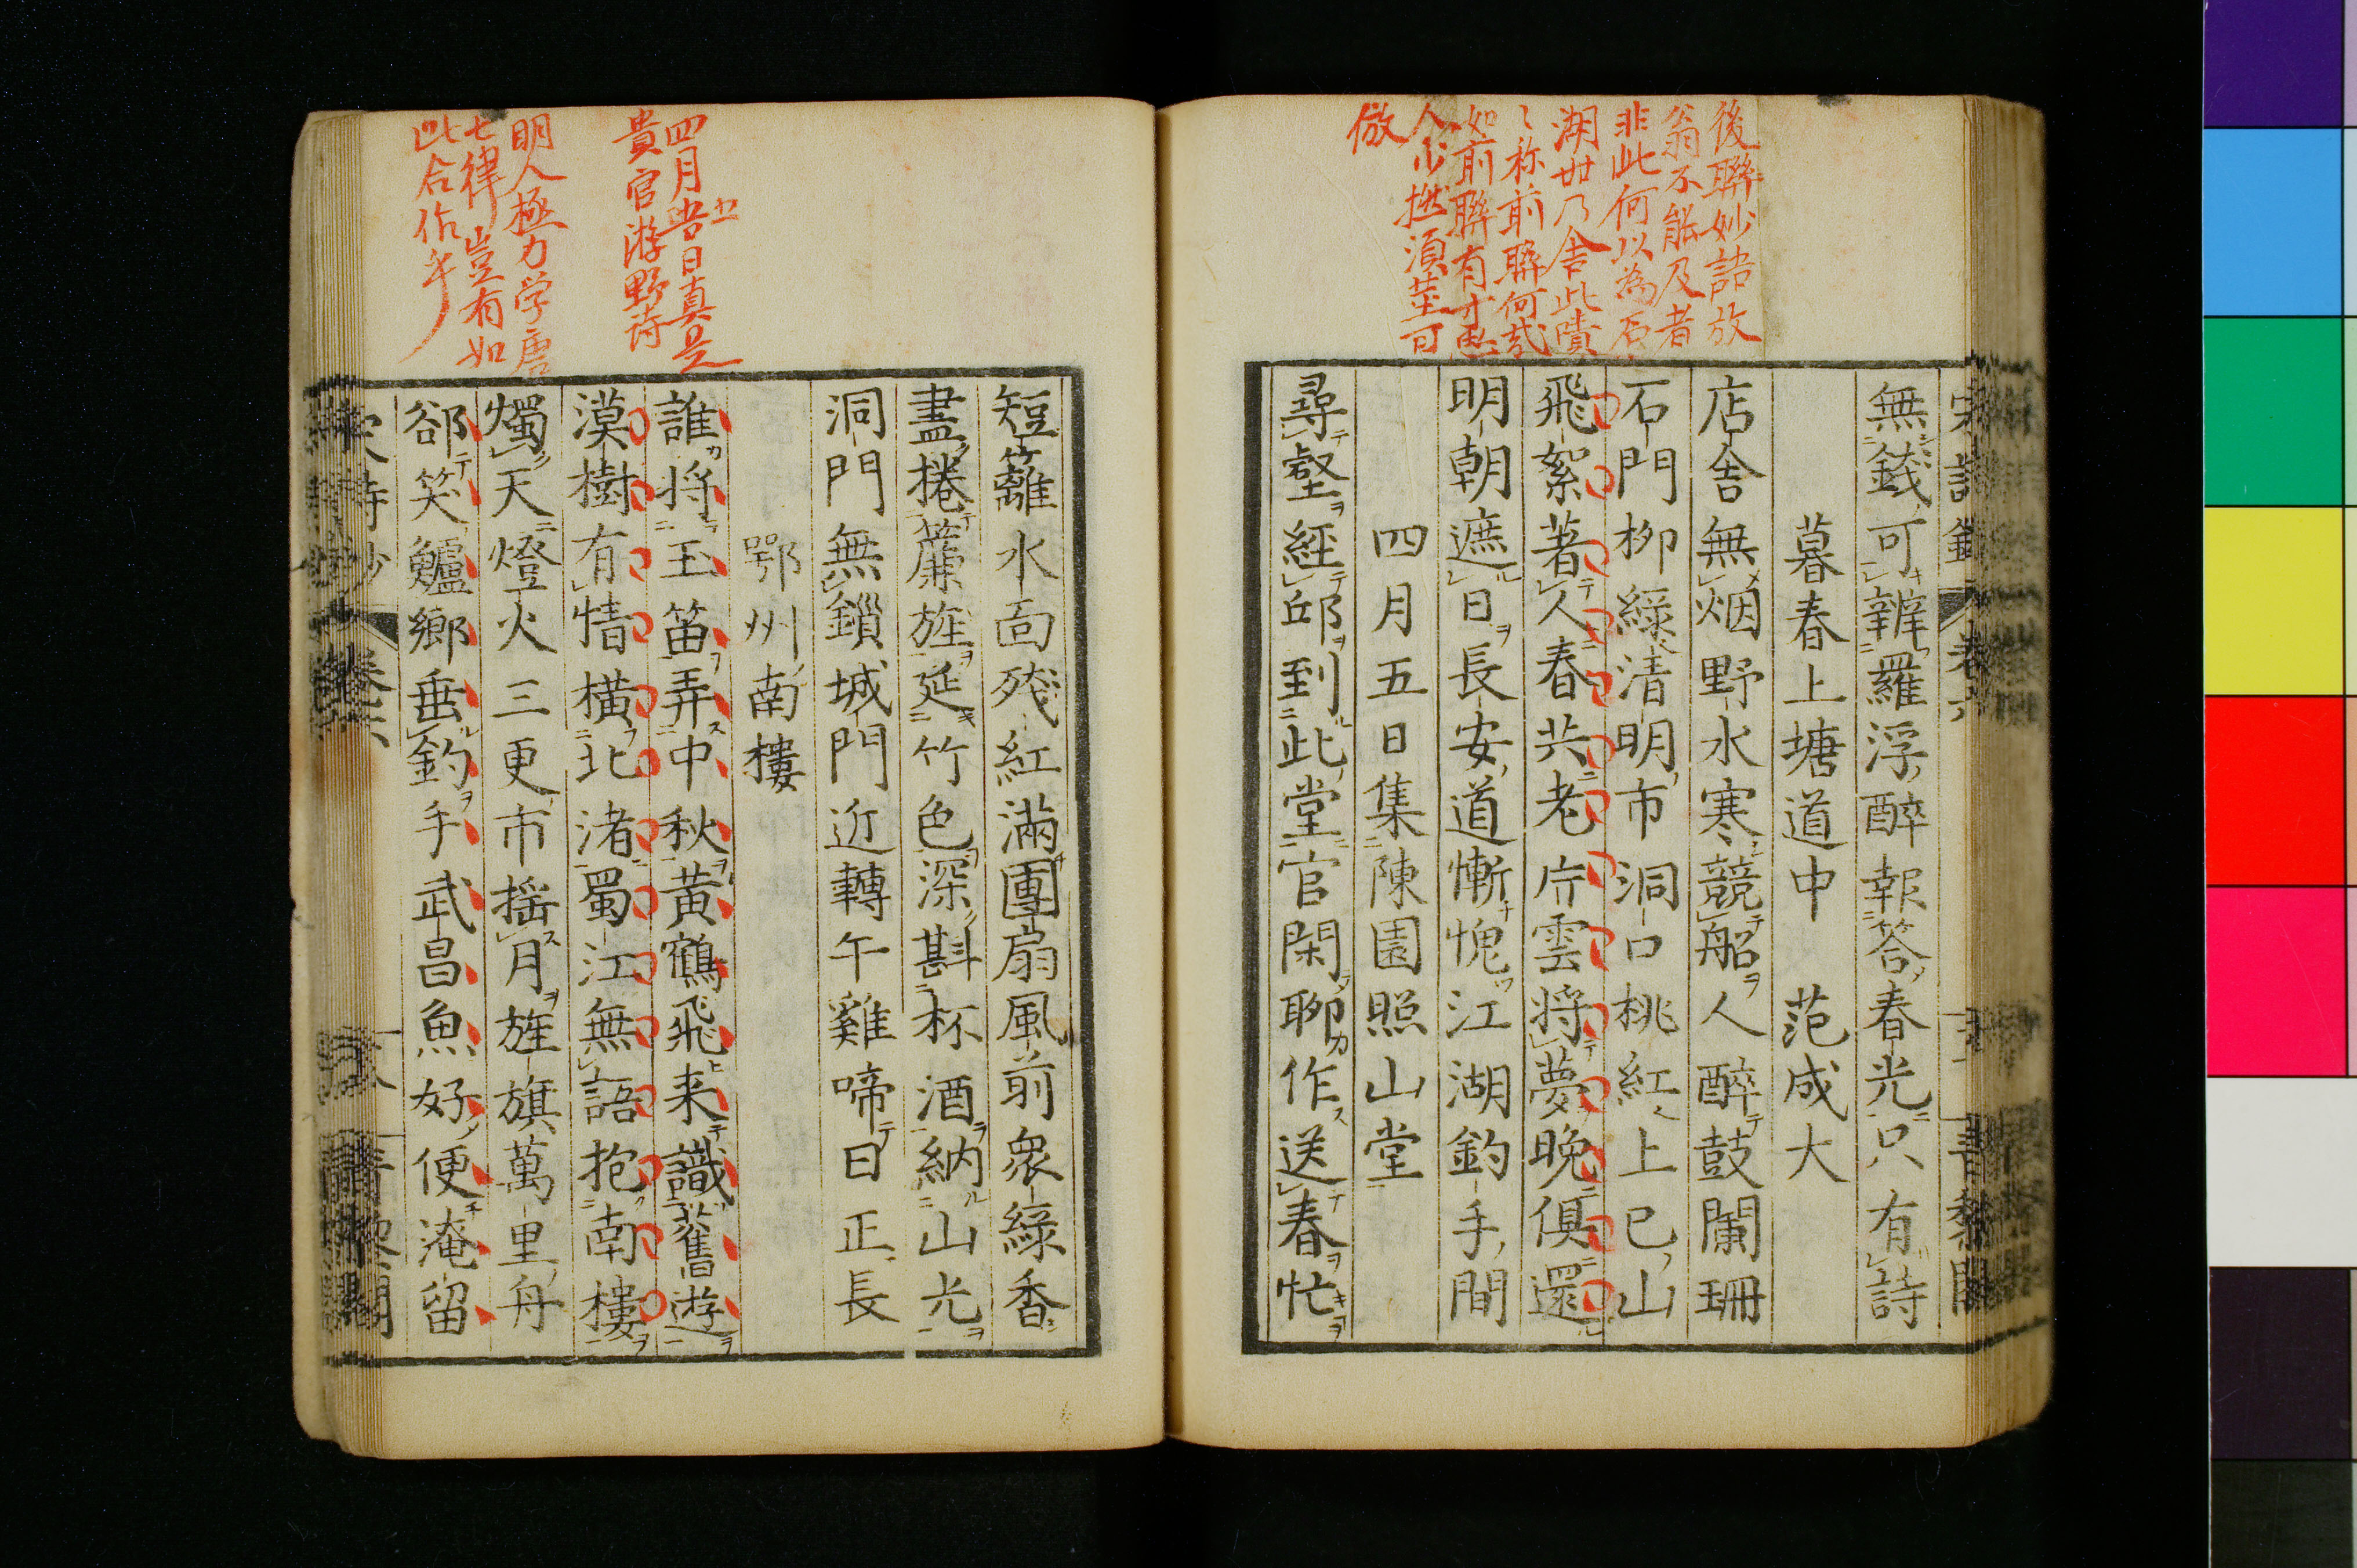 後聯妙語放
翁不能及者
非此何以為石
湖世乃舍此嘖
〻称前聯何哉
如前聯有才思
人少撚須莖可
倣
宋詩鈔 卷六 青藜閣
無錢可辦羅浮醉報答春光只有詩
暮春上塘道中 范成大
店舍無烟野水寒競船人醉鼓闌珊
石門柳綠清明市洞口桃紅上巳山
飛絮著人春共老片雲將夢晚俱還
明朝遮日長安道慚愧江湖釣手間
四月五日集陳園照山堂
尋壑經邱到此堂官閑聊作送春忙
四月五日真是
貴官游野诗
明人極力学唐
七律豈有如
此合作乎
短籬水面殘紅滿團扇風前衆綠香
盡捲簾旌延竹色深斟杯酒納山光
洞門無鎻城門近轉午雞啼日正長
鄂州南樓
誰將玉笛弄中秋黃鶴飛来識舊遊
漠樹有情橫北渚蜀江無語抱南樓
燭天燈火三更市摇月旌旗萬里舟
郤笑鱸鄉垂釣手武昌魚好便淹留
宋詩鈔 卷六 青藜閣